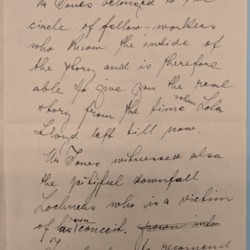 Mr Jones belonged to the
circle of fellow-workers
who know the inside of
the story and is therefore
able to give you the real
story from the time when Lola
Lloyd left till now.
Mr Jones witnessed also
the pitiful downfall
Lochners who is a victim
of his own conceit.